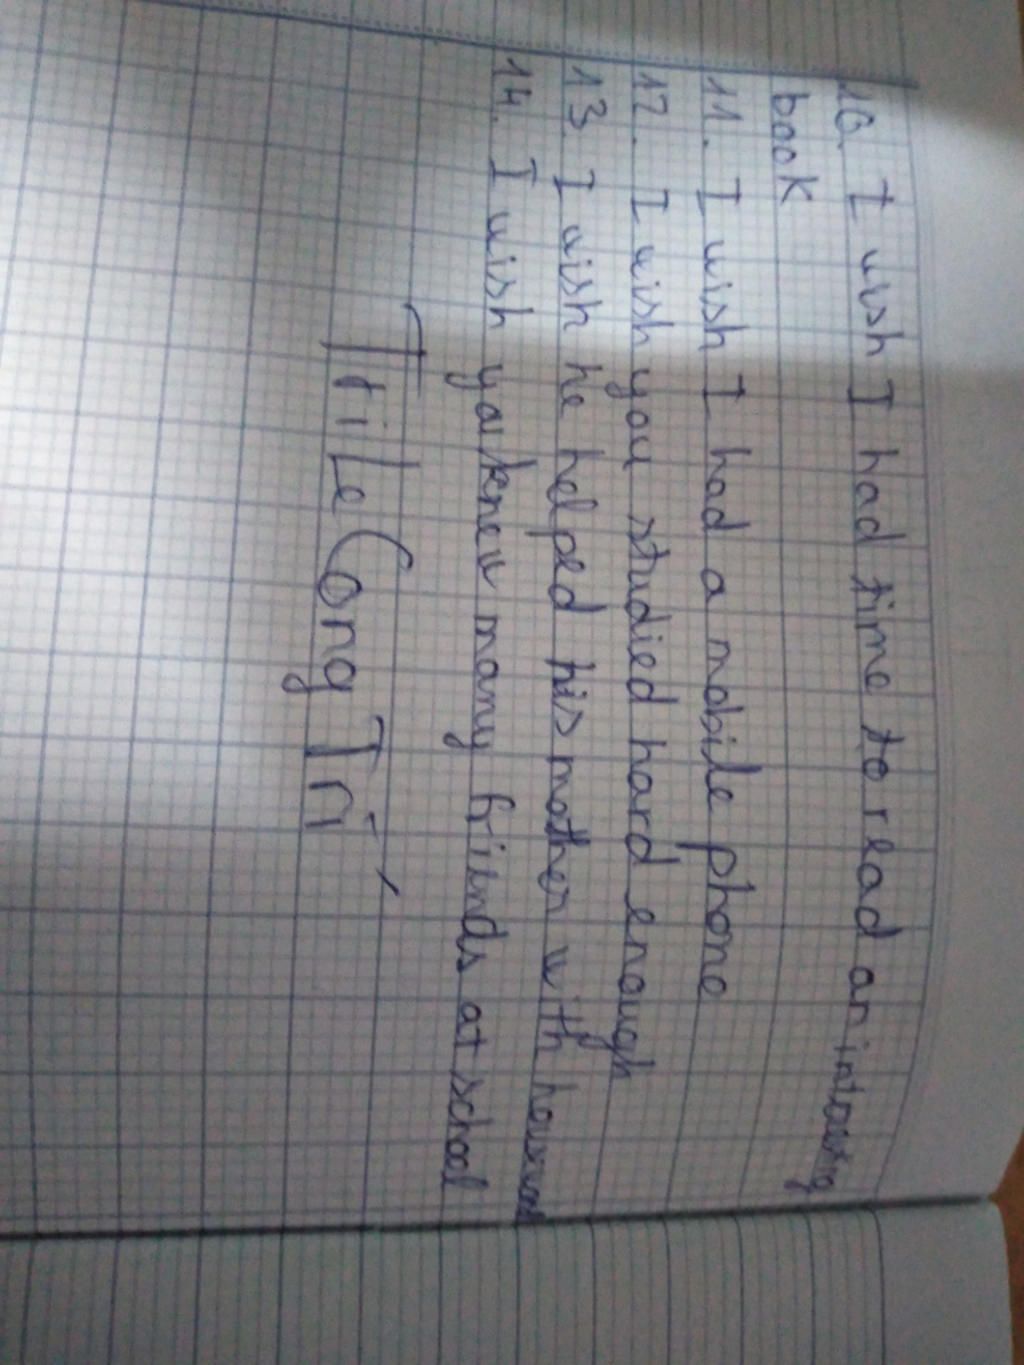 10. I wish I had time to read an interesting
book
11. I wish I had a mobile phone
12. I wish you studied hard enough
13 I wish he helped his mother with housework
14. I wish you knew many friends at school
Tri Le Cong Trí